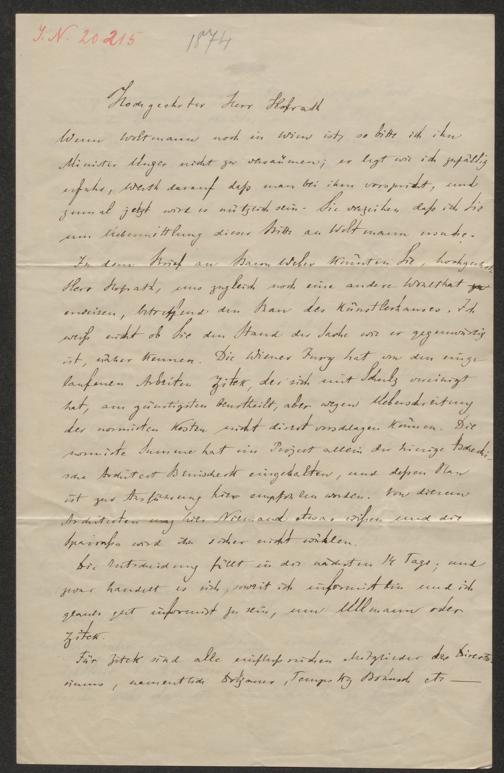 J. N. 20215
1874
Hochgeehrter Herr Hofrath
Wenn Woltmann noch in Wien ist, so bitte ich ihn
Minister Unger nicht zu versäumen; er legt wie ich zufällig
erfuhr, Werth darauf daß man bei ihm vorspricht, und
zumal jetzt wird es nützlich sein. Sie verzeihen daß ich Sie
um Uebermittlung dieser Bitte an Woltmann ersuche.
In dem Brief an Baron Weber könnten Sie, hochgeehrter
Herr Hofrath, uns zugleich noch eine andere Wohlthat
erweisen, betreffend den Bau des Künstlerhauses. Ich
weiß nicht ob Sie den Stand der Sache wie er gegenwärtig
ist, näher kennen. Die Wiener Jury hat von den einge
laufenen Arbeiten Zitek, der sich mit Schulz vereinigt
hat, am günstigsten beurtheilt, aber wegen Ueberschreitung
der normirten Kosten nicht direct vorschlagen können. Die
normirte Summe hat ein Project allein der hiesige tschechi-
sche Architect Benischek eingehalten, und dessen Plan
ist zur Ausführung hier empfohlen worden. Von diesem
Architecten mag hier Niemand etwas wissen und die
Sparcassa wird ihn sicher nicht wählen.
Die Entscheidung fällt in den nächsten 14 Tage; und
zwar handelt es sich, soweit ich informirt bin und ich
glaube gut informirt zu sein, um Ullmann oder
Zitek.
Für Zitek sind alle einflußreichen Mitglieder des Directo-
riums, namentlich Tempsky etc —